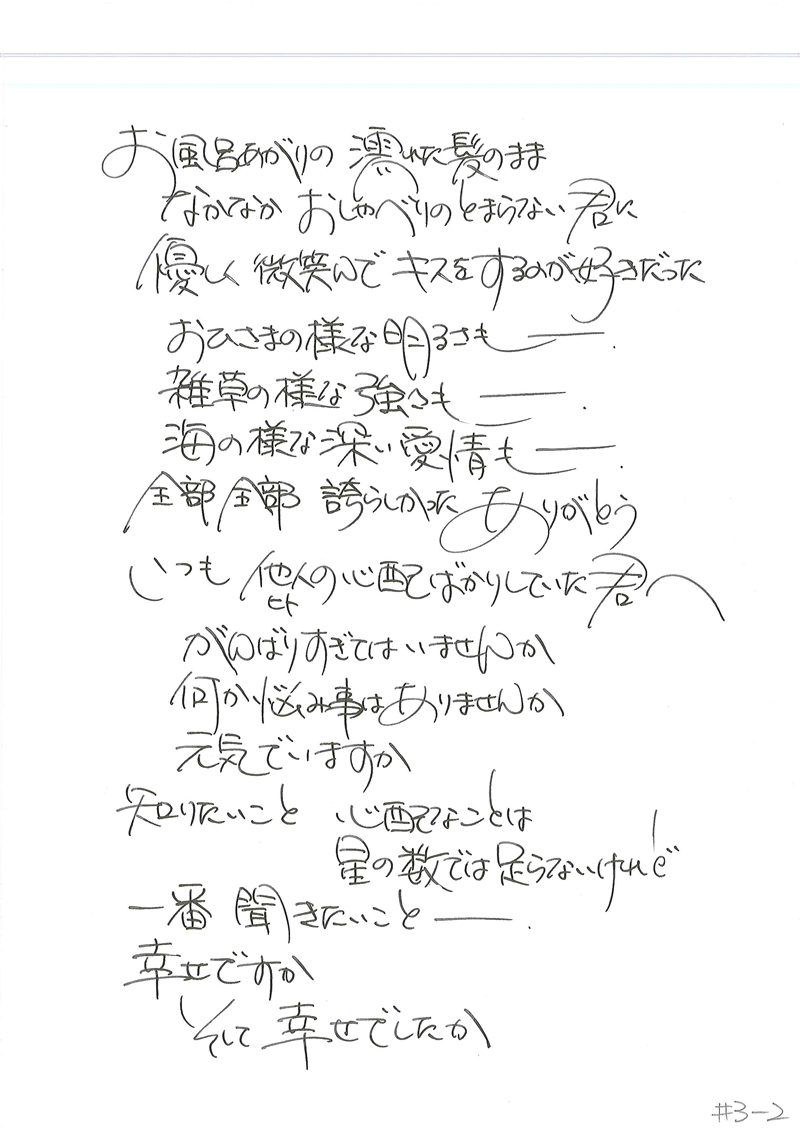 お風呂あがりの 濡れた髪のまま
なかなか おしゃべりの とまらない 君に
優しく 微笑んで キスをするのが好きだった
おひさまの様な明るさも――.
雑草の様な強さも――.
海の様な深い愛情も――.
全部全部 誇らしかった ありがとう
いつも 他人の心配てばかりしていた君へ
ヒト
がんばりすぎてはいませんか
何か悩み事はありませんか
元気でいますか
知りたいこと 心配なことは
星の数では足らないけれど
一番 聞きたいこと――.
幸せですか
そして 幸せでしたか
#3-2